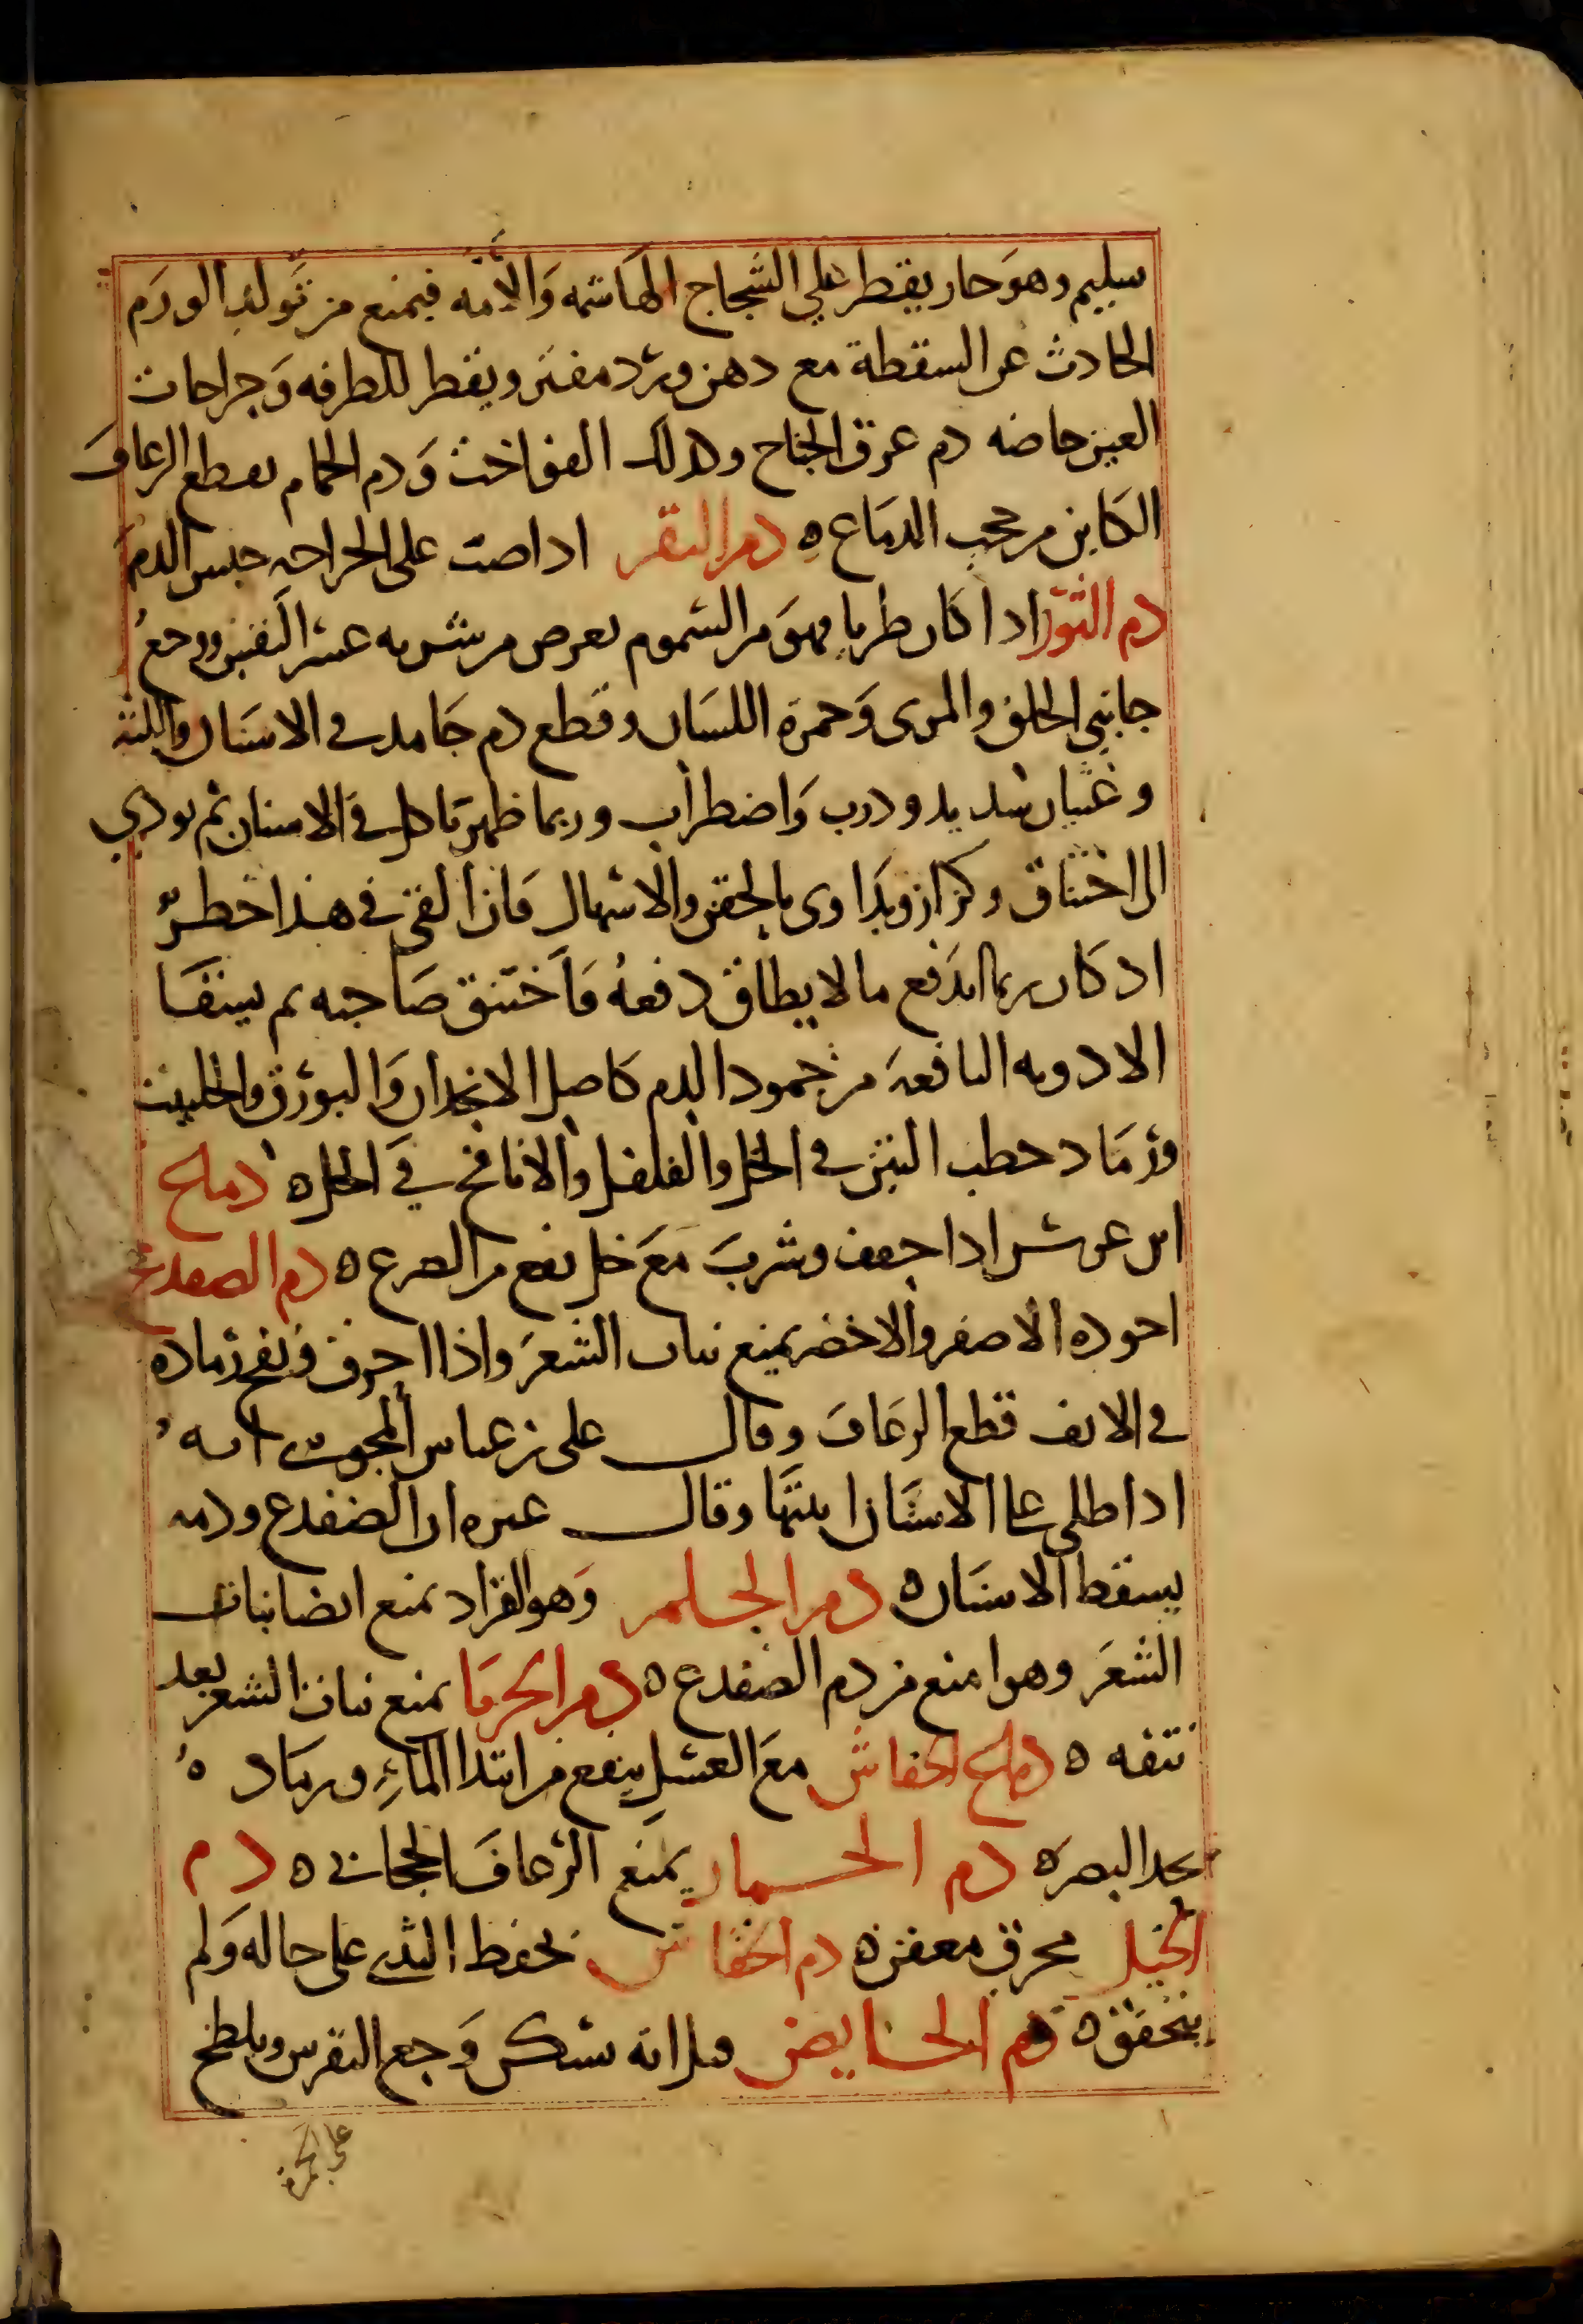 سليم وهو حار يقطر علي الشجاج الهاشمه والامه فيمنع من تولد الورم
الحادث عن السقطة مع دهن ورد مفتر ويقطر للطرفه وجراحات
العين خاصه دم عرق الجناح وكذلك الفواخت ودم الحمام يقطع الرعاف
الكاين من حجب الدماغ ه دم البقر اذا صب على الجراحه حبس الدم
دم الثور اذا كان طريا فهو من السموم يعرض من شربه عسر النفس ووجع
جانبي الحلق والمرى وحمرة اللسان وقطع دم جامد في الاسنان واللثه
وغثيان شديد وذرب واضطراب وربما ظهر تاكل في الاسنان ثم يودي
الى اختناق وكزاز ويداوى بالحقن والاسهال فان القى في هذا خطر
اذ كان ربما اندفع ما لا يطاق دفعه فاختنق صاحبه ثم يسقا
الادويه النافعه من جمود الدم كاصل الانجدان والبورق والحلتيت
ورماد حطب التين في الخل والفلفل والانافح في الخل ه دماغ
ابن عرس اذا جفف وشرب مع خل نفع من الصرع ه دم الضفدع
اجوده الاصفر والاخضر يمنع نبات الشعر واذا احرق ونفخ رماده
في الانف قطع الرعاف وقال على بن عباس المجوسي انه
اذا طلى على الاسنان اثبتها وقال غيره ان الضفدع ودمه
يسقط الاسنان ه دم الحلم وهو القراد يمنع ايضا نبات
الشعر وهو امنع من دم الضفدع ه دم الحربا يمنع نبات الشعر بعد
نتفه ه دماغ الخفاش مع العسل ينفع من ابتدا الماء ورماده
يحد البصر ه دم الحمار يمنع الرعاف الحجابي ه دم
الخيل محرق معفن ه دم الخفاش يحفظ الثدي على حاله ولم
يتحقق ه دم الحايض قيل انه يسكن وجع النقرس ويلطخ
على الحمرة